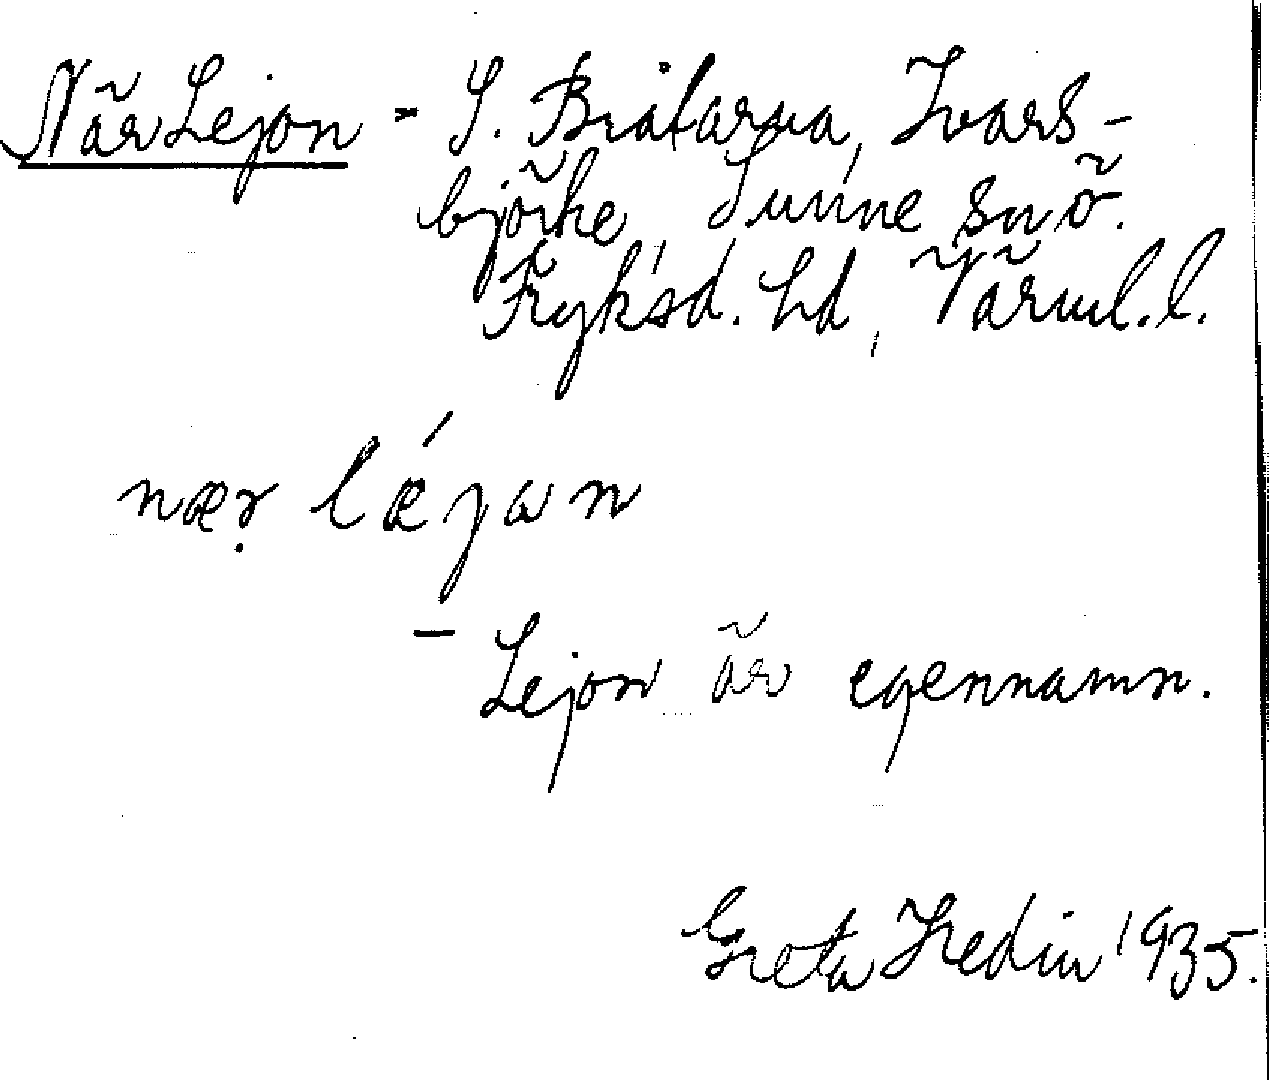 När Lejon - S. Bråtarna, Ivars-
björke, Sunne snö.
Fryksd. hd, Värml.l.
nær lǽjan
- Lejon är egennamn.
Greta Hedin 1935.